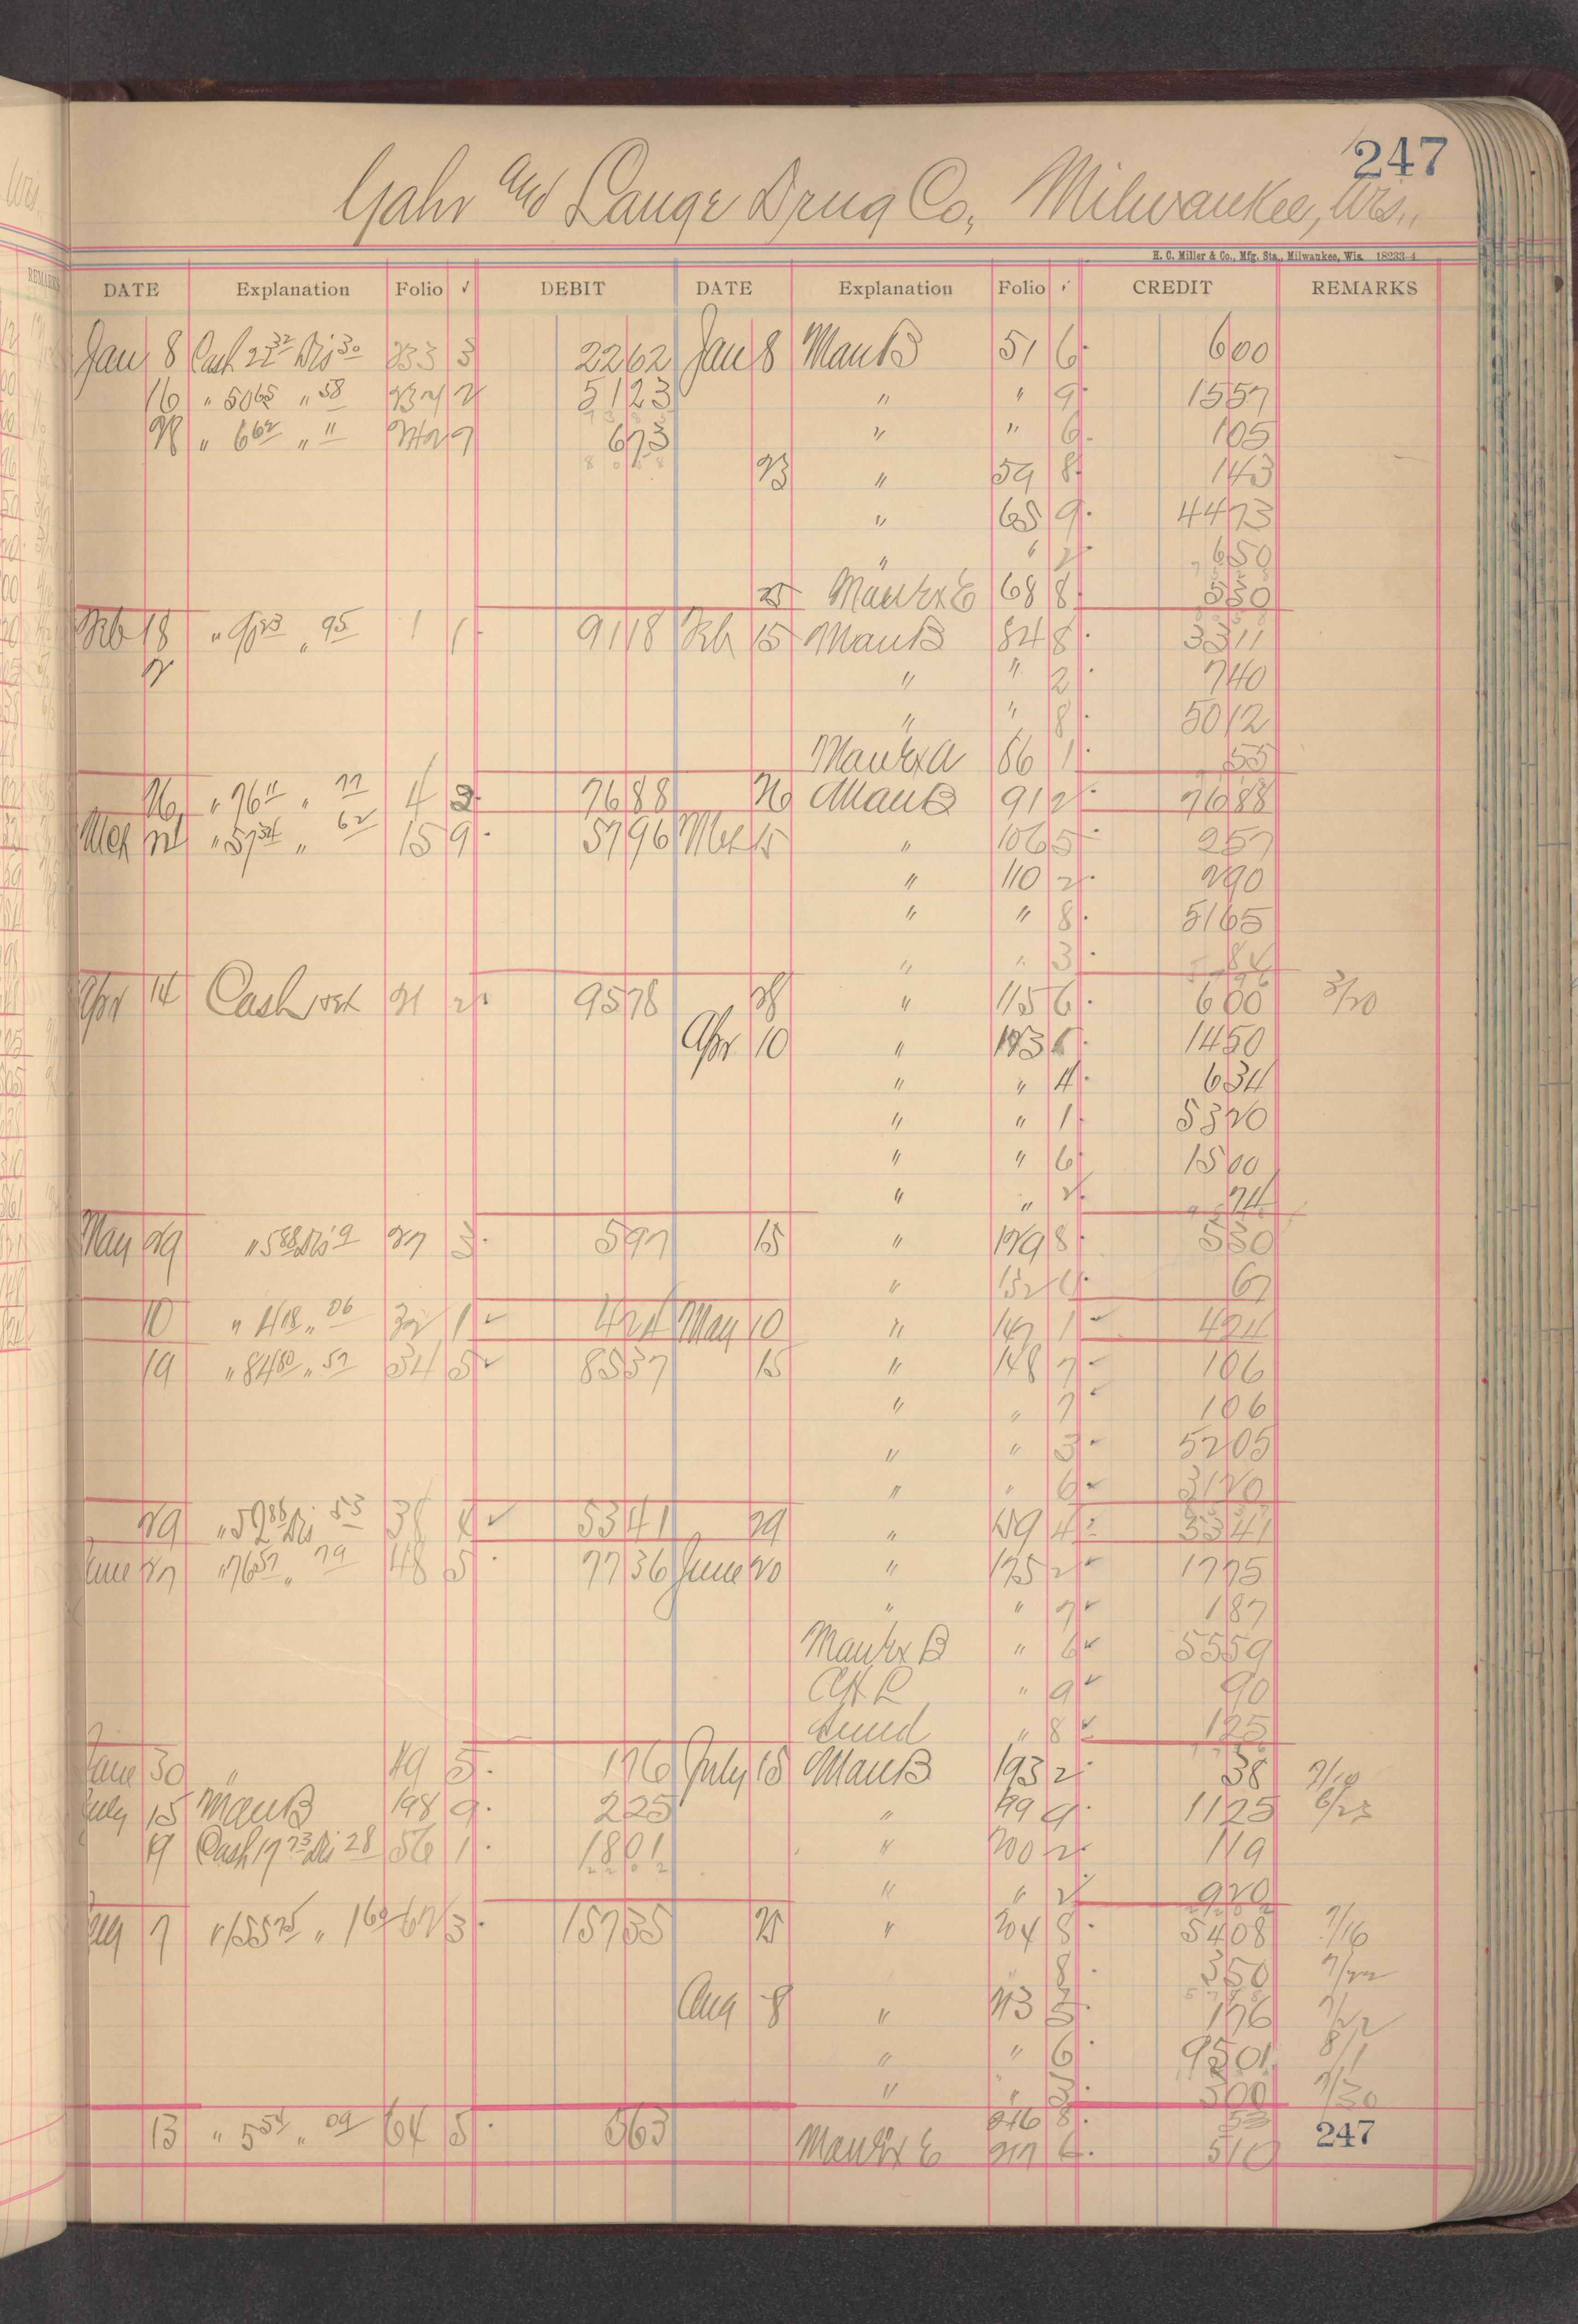 247
Yahr and Lange Drug Co., Milwaukee, Wis.
H. C. Miller & Co., Mfg. Sta., Milwaukee, Wis. 18233-4
DATE Explanation Folio ✓ DEBIT DATE Explanation Folio ✓ CREDIT REMARKS
Jan 8 Cash 22 32 Dis 30 233 3 22 62 Jan 8 Man B 51 6 6 00
16 " 50 65 " 58 2 51 23 " " 9 15 57
28 " 6 62 " 11 7 6 73 " " 6 1 05
23 " 59 8 1 43
" 65 9 44 73
" " 2 6 50
25 Man Ex E 68 8 5 30
Feb 18 " 90 23 " 95 1 1 91 18 Feb 15 Man B 84 8 33 11
" " 2 7 40
" " 8 50 12
Man Ex A 86 1 55
26 " 76 11 " 77 4 3 76 88 26 Man B 91 2 76 88
Mch 21 " 57 34 " 62 15 9 57 96 Mch 15 " 106 5 2 57
" 110 2 2 90
" " 8 51 65
" " 3 84
Apr 14 Cash 21 2 95 78 28 " 115 6 6 00 3/20
Apr 10 " 123 14 50
" " 4 6 34
" " 1 53 20
" " 6 15 00
" " 2 74
May 29 " 5 88 Dis 9 27 3 5 97 15 " 129 8 5 30
" 132 67
10 " 4 18 " 06 32 1 4 24 May 10 " 147 1 4 24
19 " 84 80 " 57 34 5 85 37 15 " 148 7 1 06
" " 7 1 06
" " 3 52 05
" " 6 31 20
29 " Dis 53 38 53 41 29 " 159 4 53 41
June 27 " 76 57 " 79 48 5 77 36 June 20 " 175 2 17 75
" " 7 1 87
Man Ex B " 6 55 59
" 9 90
" 8 1 25
June 30 " 49 5 1 76 July 15 Man B 193 2 38 7/10
July 15 Man B 198 9 2 25 " 199 9 11 25 6/23
19 Cash 17 73 Dis 28 56 1 18 01 " 200 2 1 19
" " 2 9 20
Aug 7 " 155 75 " 1 60 62 3 157 35 25 " 204 8 54 08 7/16
" 8 3 50 7/22
Aug 8 " 213 5 1 76 7/22
" " 6 95 01 8/1
" " 3 3 00 7/30
13 " 5 54 " 09 64 5 5 63 216 8 53
Man Ex E 217 6 5 10
247